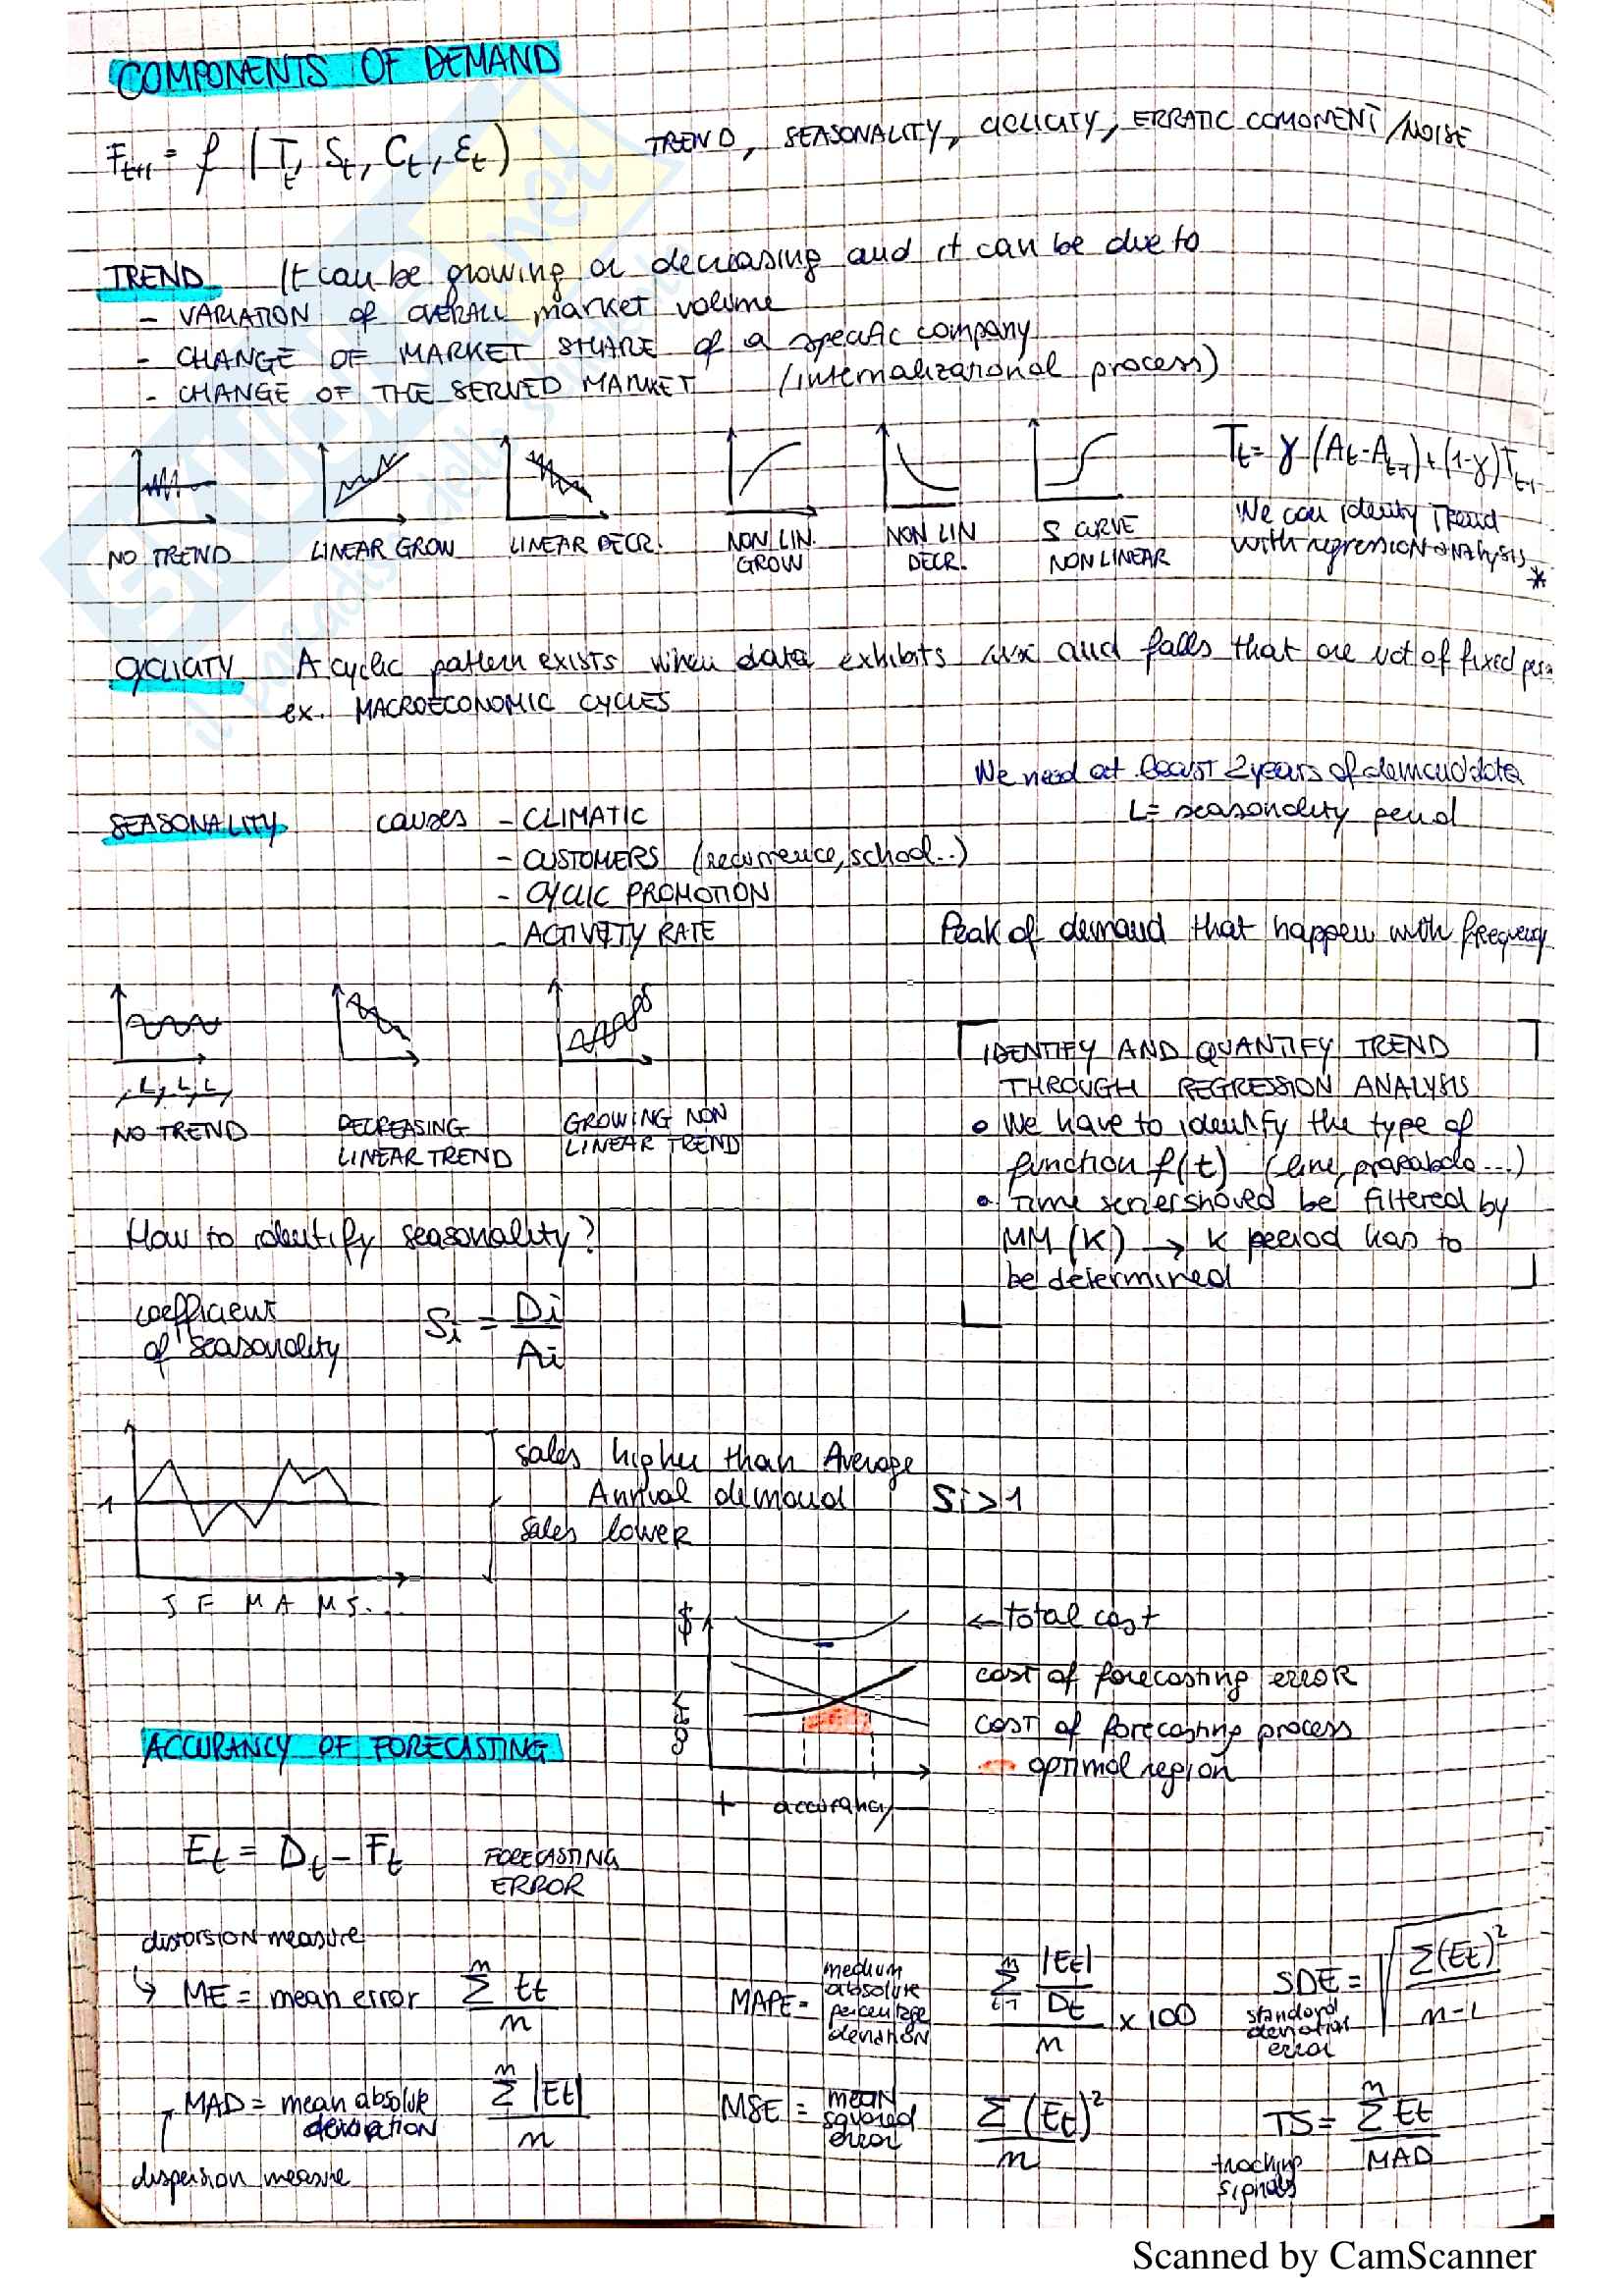 COMPONENTS OF DEMAND
F_{t+1} = f (T_t, S_t, C_t, ε_t) TREND, SEASONALITY, CICLICITY, ERRATIC COMONENT/NOISE
TREND It can be growing or decreasing and it can be due to
- VARIATION of OVERALL market volume
- CHANGE OF MARKET SHARE of a specific company
- CHANGE OF THE SERVED MARKET (internalizational process)
T_t = γ (A_t - A_{t-1}) + (1-γ) T_{t-1}
We can identify Trend
with regression analysis *
NO TREND
LINEAR GROW
LINEAR DECR.
NON LIN. GROW
NON LIN DECR.
S CURVE NON LINEAR
CYCLICITY A cyclic pattern exists when data exhibits and falls that are not of fixed
ex. MACROECONOMIC CYCLES
We need at least 2 years of demand data
L = seasonality period
SEASONALITY causes - CLIMATIC
- CUSTOMERS (recurrence, school..)
- CYCLIC PROMOTION
- ACTIVITY RATE
Peak of demand that happen with frequency
L, L, L,
NO TREND
DECREASING LINEAR TREND
GROWING NON LINEAR TREND
IDENTIFY AND QUANTIFY TREND
THROUGH REGRESSION ANALYSIS
• We have to identify the type of
function f(t) (line, prapabola...)
• Time series should be filtered by
MM (K) → K period has to
be determined
How to identify seasonality?
coefficient
of seasonality
S_i = D_i / A_i
1
J F M A M J...
Sales higher than Average
Annual demand Si > 1
Sales lower
$
COST
← total cost
cost of forecasting error
cost of forecasting process
optimal region
+ accurancy -
ACCURANCY OF FORECASTING
E_t = D_t - F_t FORECASTING
ERROR
distorsion measure
↳ ME = mean error Σ^n E_t / n
MAPE = medium absolute percentage deviation Σ_{t=1}^n |E_t| / D_t / n × 100
SDE = √ Σ(E_t)² / n-1
standard deviation error
MAD = mean absolute deviation Σ^n |E_t| / n
MSE = mean squared error Σ (E_t)² / n
TS = Σ^n E_t / MAD
tracking signals
dispersion measure
SKUOLA.net
Scanned by CamScanner